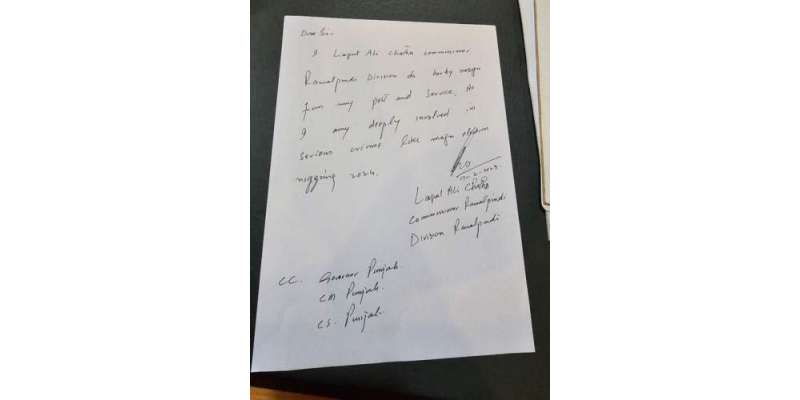 Dear Sir.
I Liaqat Ali Chatha commissioner
Rawalpindi Division do hereby resign
from my post and service. As
I am deeply involved in
serious crime like mega election
rigging 2024.
Liaqat Ali Chatha
Commissioner Rawalpindi
Division Rawalpindi
CC. Governor Punjab.
CM Punjab.
CS. Punjab.